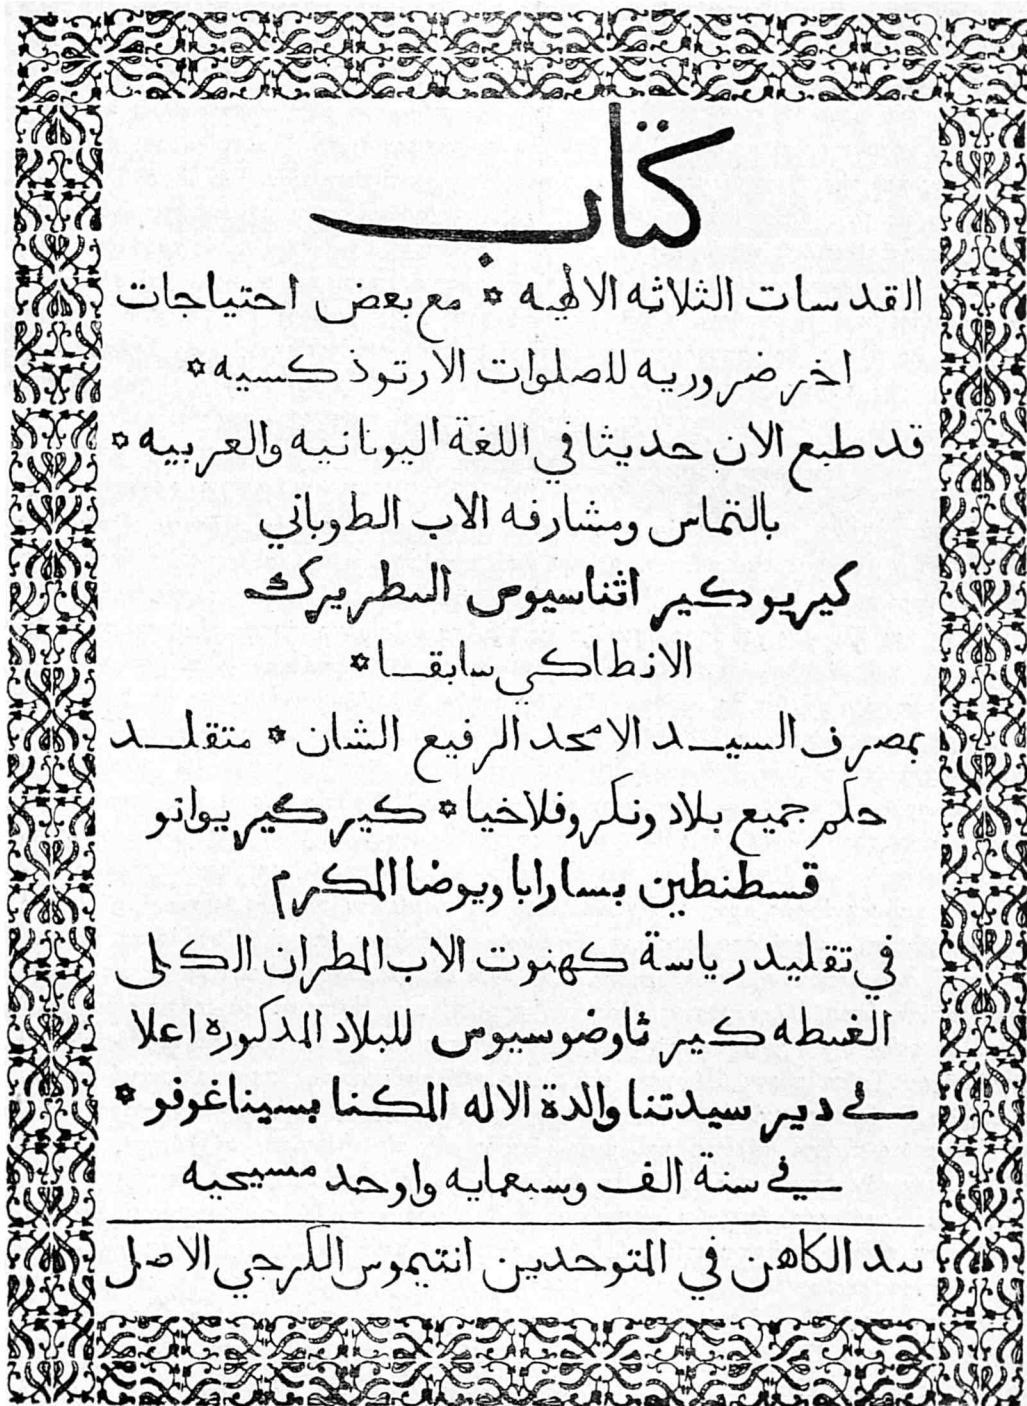 كتاب
القداسات الثلاثه الالهيه * مع بعض احتياجات
اخر ضروريه للصلوات الارتودكسيه *
قد طبع الان حديثا في اللغة اليونانيه والعربيه *
بالتماس ومشارفه الاب الطوباني
كيريو كير اثناسيوس البطريرك
الانطاكي سابقا *
بمصرف السيد الامجد الرفيع الشان * متقلد
حكم جميع بلاد ونكروفلاخيا * كير كير يوانو
قسطنطين بساراباويوضا المكرم
في تقليد رياسة كهنوت الاب المطران الكلى
الغبطه كير ثاوضوسيوس للبلاد المذكورة اعلا
في دير سيدتنا والدة الاله المكنا بسيناغوفو *
في سنة الف وسبعمايه واوحد مسيحيه
بيد الكاهن في المتوحدين انتيموس الكرجي الاصل